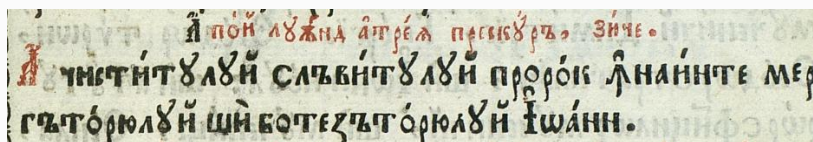 Апо́й лꙋѫнд а҆тре́ѧ прескꙋ́ръ, зи́че.
А҆чисти́тꙋлꙋй слъви́тꙋлꙋй проро́к ꙟ҆наи́нте мер
гъто́рюлꙋй шѝ ботезъто́рюлꙋй І҆ѡа́нн.